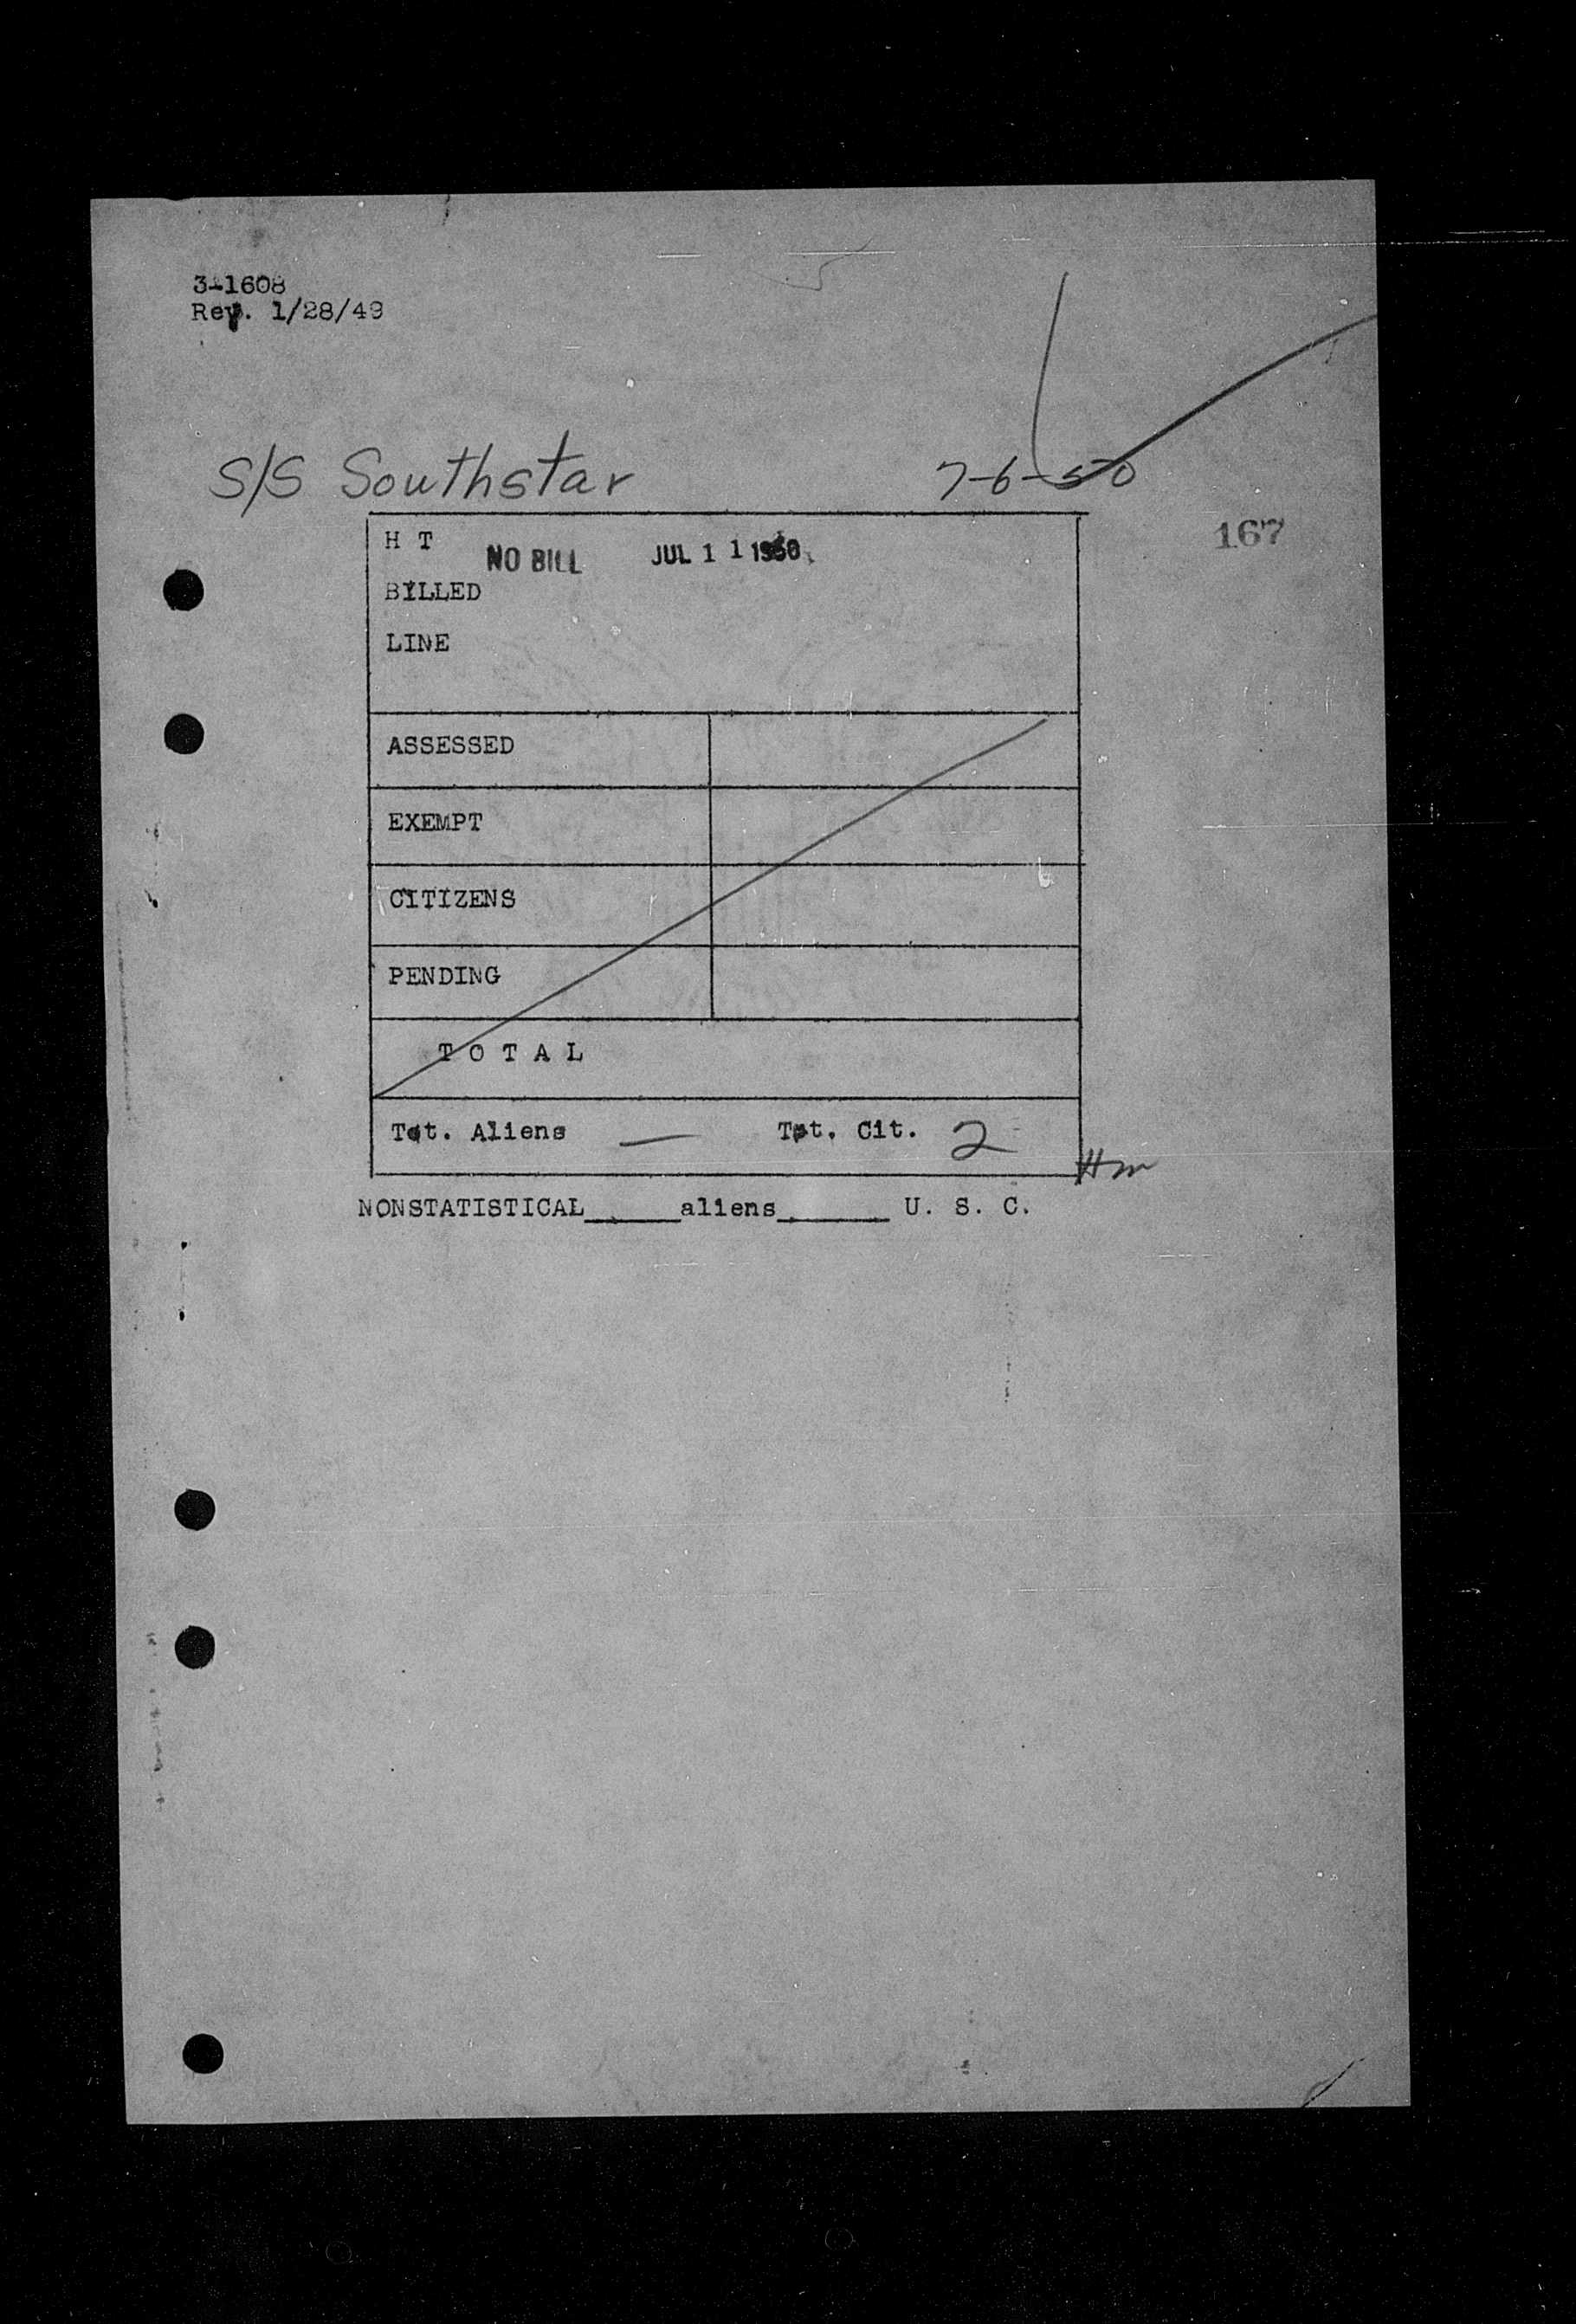 3-1608
Rev. 1/28/49
S/S Southstar 7-6-50
167
H T NO BILL JUL 11 1950
BILLED
LINE
ASSESSED
EXEMPT
CITIZENS
PENDING
T O T A L
Tot. Aliens — Tot. Cit. 2
Hm
NONSTATISTICAL_____aliens______ U. S. C.